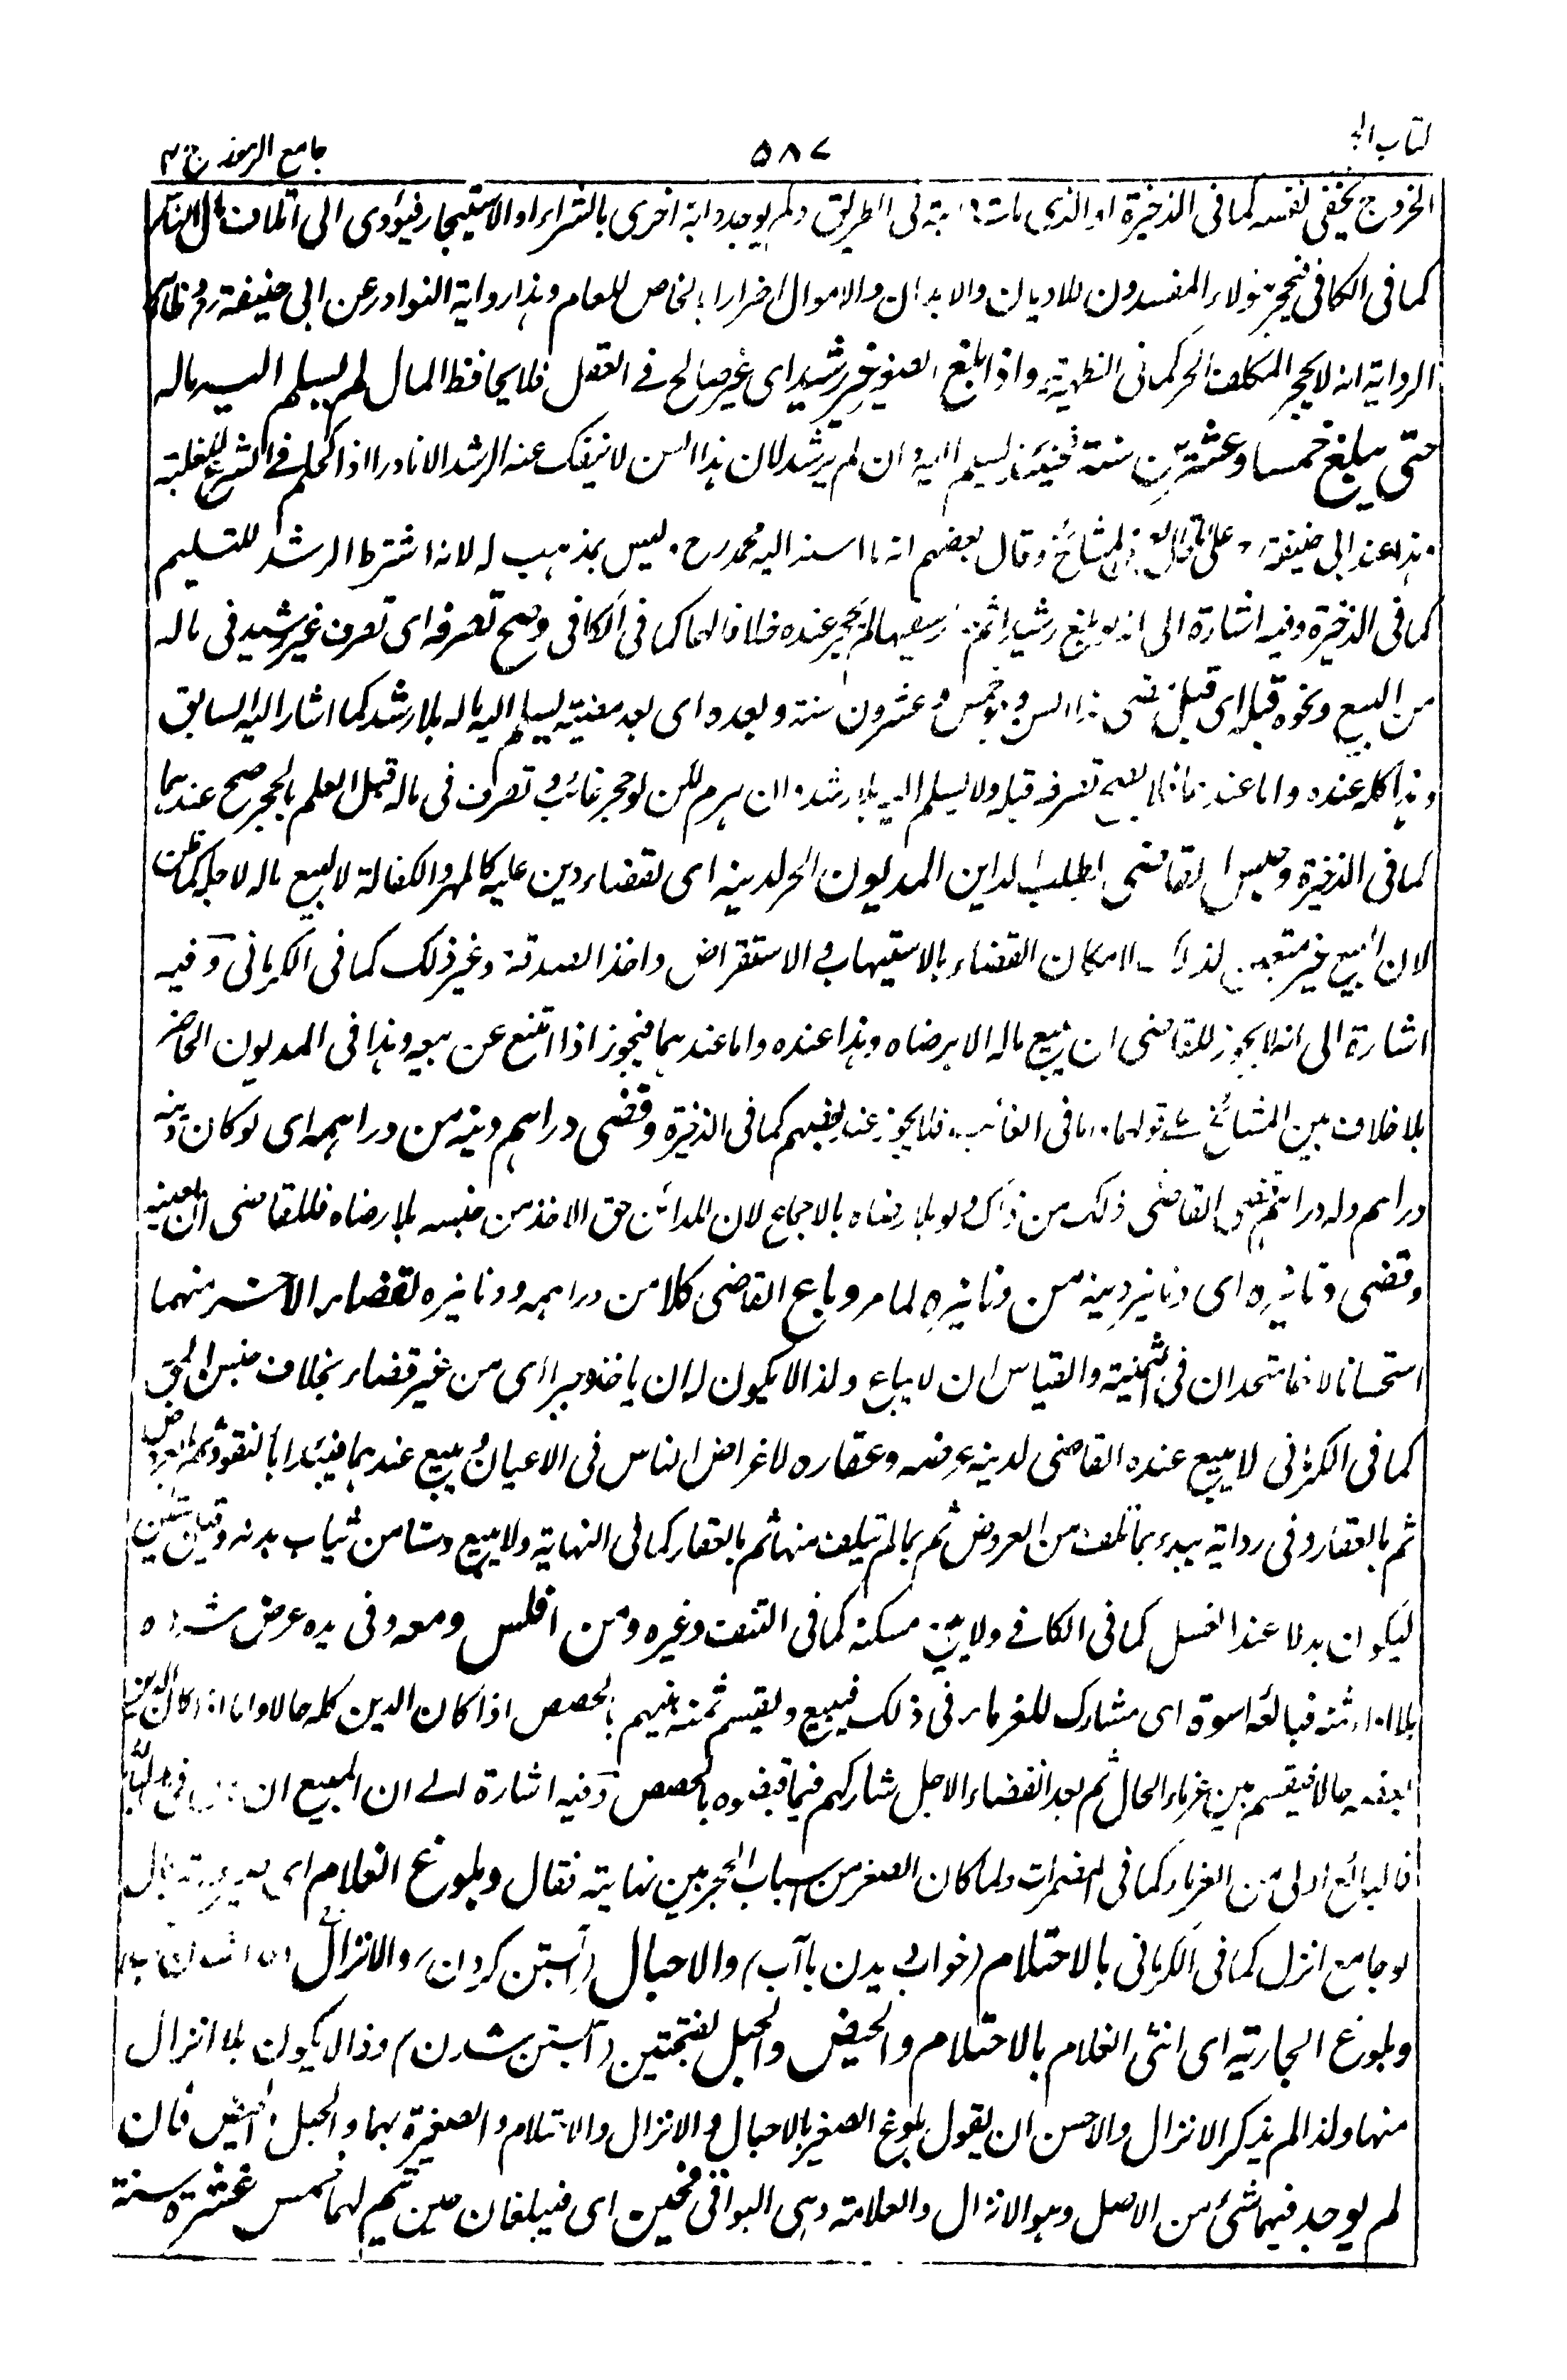 كتاب الحجر
٥٨٧
جامع الرموز ج ٣
الخروج يخفى نفسه كما فى الذخيرة او الذى مات دابته فى الطريق ولم يوجد دابة اخرى بالشراء او الاستيجار فيؤدى الى اتلاف مال الناس
كما فى الكافى فيحجر هؤلاء المفسدون للاديان والابدان والاموال اضرارا بالخاص للعام وهذا رواية النوادر عن ابى حنيفة رح وظاهر
الرواية انه لا يحجر المكلف الحر كما فى الظهيرية واذا بلغ الصغير غير رشيد اى غير صالح فى العقل فلا يحافظ المال لم يسلم اليه ماله
حتى يبلغ خمسا وعشرين سنة فحينئذ يسلم اليه وان لم يرشد لان هذا السن لا ينفك عنه الرشد الا نادرا اذ الحكم فى الشرع للغلبة
هذا عند ابى حنيفة رح على ما قال المشائخ وقال بعضهم انه ما اسند اليه محمد رح ليس بمذهب له لانه اشترط الرشد للتسليم
كما فى الذخيرة وفيه اشارة الى انه لو بلغ رشيدا ثم سفيها لم يحجر عنده خلافا لهما كما فى الكافى وصح تصرفه اى تصرف غير رشيد فى ماله
من البيع ونحوه قبله اى قبل مضى هذا السن وهو خمس وعشرون سنة وبعده اى بعد مضيه يسلم اليه ماله بلا رشد كما اشار اليه السابق
وهذا كله عنده واما عندهما فلا يصح تصرفه قبله ولا يسلم اليه بلا رشد وان هرم لكن لو حجر غائب وتصرف فى ماله قبل العلم بالحجر صح عندهما
كما فى الذخيرة وحبس القاضى بطلب الداين المديون الحر لدينه اى لقضاء دين عليه كالمهر والكفالة لا لبيع ماله لاجله كما ظن
لان البيع غير متعين لذلك لامكان القضاء بالاستيهاب والاستقراض واخذ الصدقة وغير ذلك كما فى الكرمانى وفيه
اشارة الى انه لا يجوز للقاضى ان يبيع ماله الا برضاه وهذا عنده واما عندهما فيجوز اذا امتنع عن بيعه وهذا فى المديون الحاضر
بلا خلاف بين المشائخ على قولهما واما فى الغائب فلا يجوز عند بعضهم كما فى الذخيرة وقضى دراهم دينه من دراهمه اى لو كان دينه
دراهم وله دراهم قضى القاضى ذلك من ذاك ولو بلا رضاه بالاجماع لان للدائن حق الاخذ من جنسه بلا رضاه فللقاضى ان يعينه
وقضى دنانيره اى دنانير دينه من دنانيره لما مر وباع القاضى كلا من دراهمه ودنانيره لقضاء الآخر منهما
استحسانا لانهما متحدان فى الثمنية والقياس ان لا يباع ولذا لا يكون له ان ياخذه جبرا اى من غير قضاء بخلاف جنس الحق
كما فى الكرمانى لا يبيع عنده القاضى لدينه عرضه وعقاره لاغراض الناس فى الاعيان ويبيع عندهما فيبدأ بالنقود ثم بالعروض
ثم بالعقار وفى رواية يبدء بما تلف من العروض ثم بما لم يتلف منها ثم بالعقار كما فى النهاية ولا يبيع دستا من ثياب بدنه وقيل دستين
ليكون بدلا عند الغسل كما فى الكافى ولا يبيع مسكنه كما فى النتف وغيره ومن افلس ومعه وفى يده عرض شراه
بلا اداء ثمنه فبائعه اسوة اى مشارك للغرماء فى ذلك فيبيع ويقسم ثمنه بينهم بالحصص اذا كان الدين كله حالا واما اذا كان الدين
بعضه حالا فيقسم بين غرماء الحال ثم بعد انقضاء الاجل شاركهم فيما قبضوه بالحصص وفيه اشارة الى ان المبيع ان
فالبائع اولى من الغرماء كما فى المضمرات ولما كان الصغر من اسباب الحجر بين نهايته فقال وبلوغ الغلام اى
لو جامع انزل كما فى الكرمانى بالاحتلام (خواب ديدن با آب) والاحبال (آبستن كردن) والانزال
وبلوغ الجارية اى انثى الغلام بالاحتلام والحيض والحبل بفتحتين (آبستن شدن) وذا لا يكون بلا انزال
منها ولذا لم يذكر الانزال والاحسن ان يقول بلوغ الصغير بالاحبال والانزال والاحتلام والصغيرة بهما والحبل والحيض فان
لم يوجد فيهما شئ من الاصل وهو الانزال والعلامة وهى البواقى فحين اى فيبلغان حين يتم لهما خمس عشرة سنة